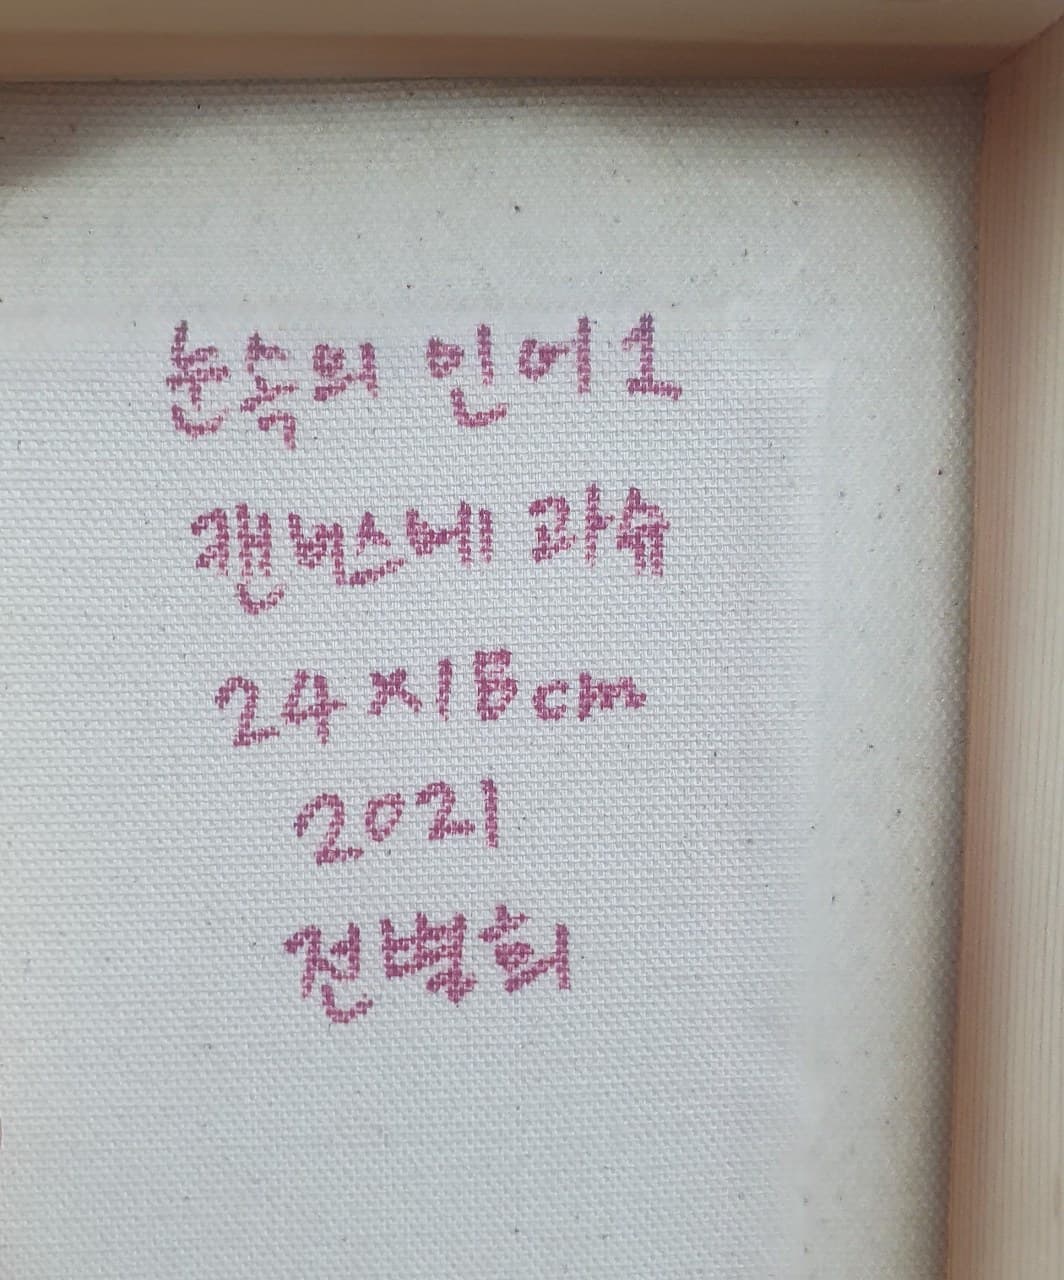 눈속의 인어1
캔버스에 과슈
24×15cm
2021
전별희